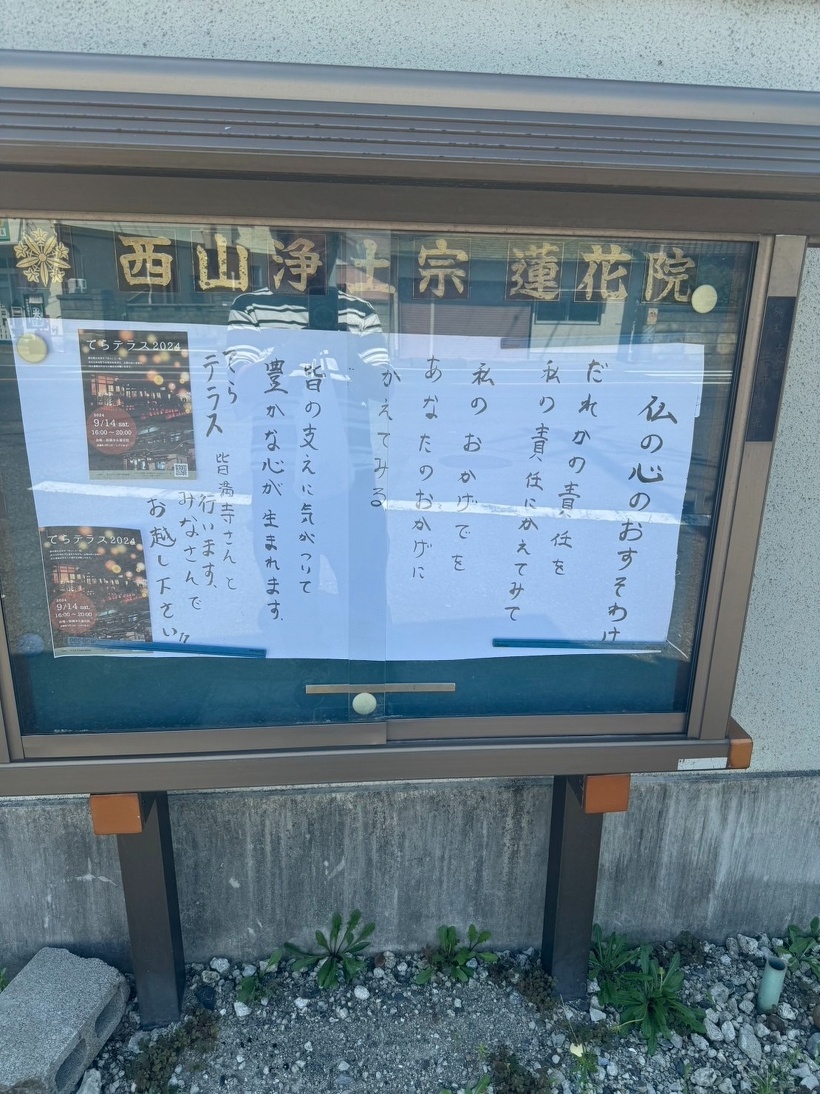 西山浄土宗 蓮花院
仏の心のおすそわけ
だれかの責任を
私の責任にかえてみて
私のおかげでを
あなたのおかげに
かえてみる
皆の支えに気がついて
豊かな心が生まれます.
てら
テラス
皆満寺さんと
行います.
みなさんで
お越し下さい!!
てらテラス2024
2024
9/14 sat.
16:00~20:00
てらテラス2024
2024
9/14 sat.
16:00~20:00